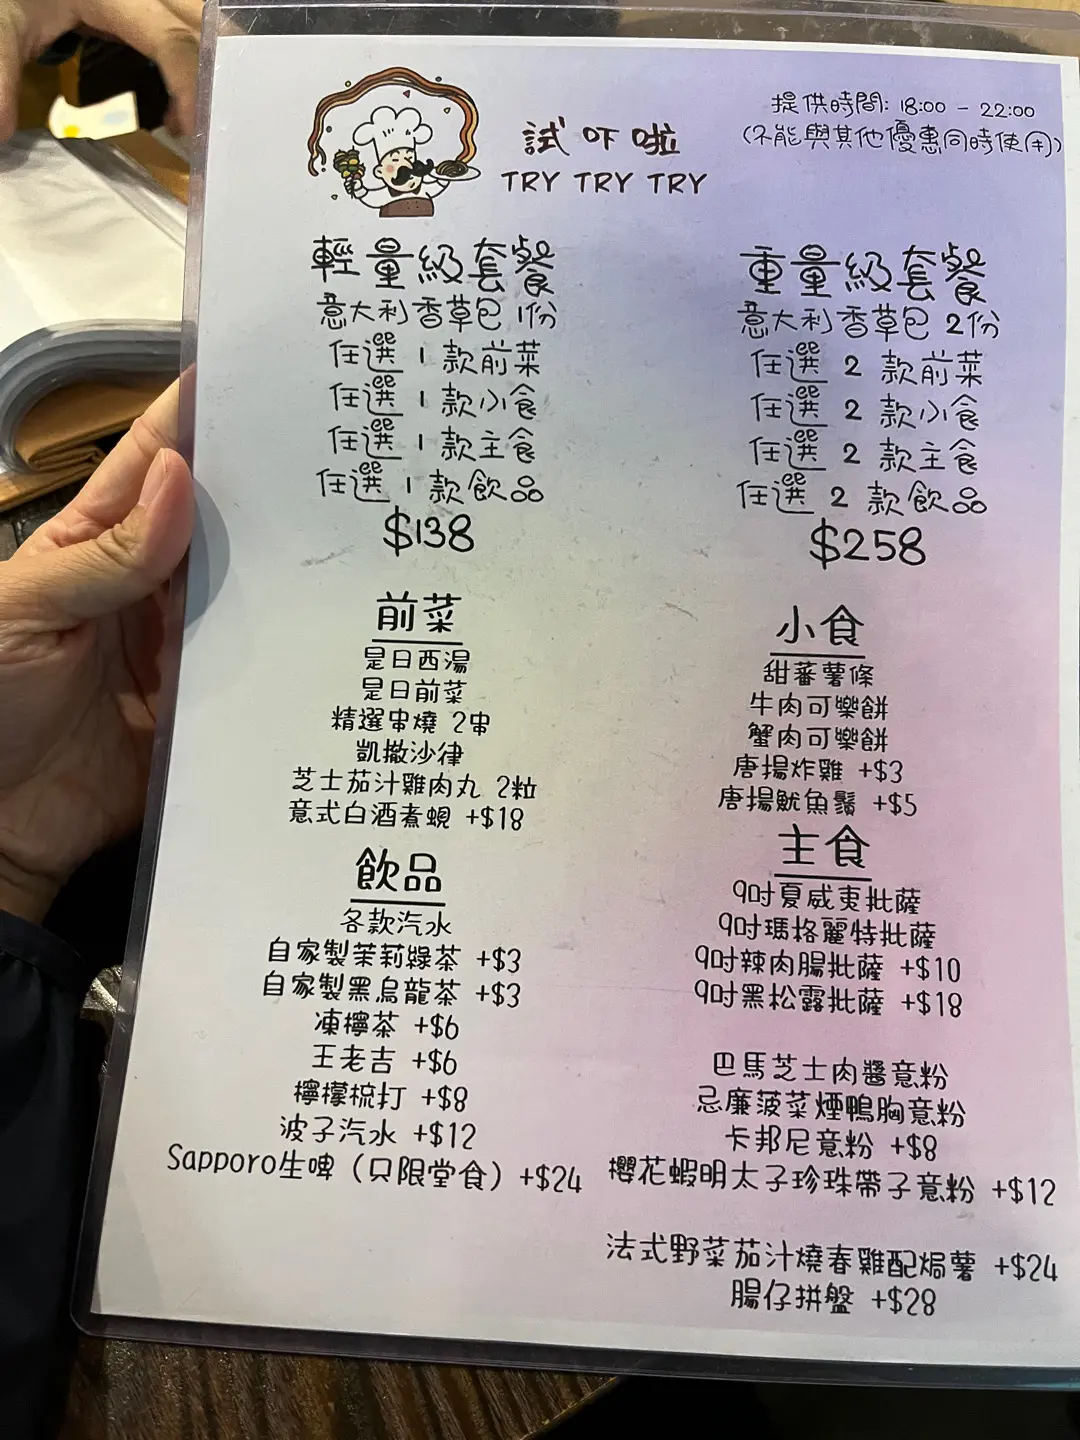 試吓啦
TRY TRY TRY
提供時間: 18:00 - 22:00
(不能與其他優惠同時使用)
輕量級套餐
意大利香草包 1份
任選 1 款前菜
任選 1 款小食
任選 1 款主食
任選 1 款飲品
$138
重量級套餐
意大利香草包 2份
任選 2 款前菜
任選 2 款小食
任選 2 款主食
任選 2 款飲品
$258
前菜
是日西湯
是日前菜
精選串燒 2串
凱撒沙律
芝士茄汁雞肉丸 2粒
意式白酒煮蜆 +$18
小食
甜蕃薯條
牛肉可樂餅
蟹肉可樂餅
唐揚炸雞 +$3
唐揚魷魚鬚 +$5
飲品
各款汽水
自家製茉莉綠茶 +$3
自家製黑烏龍茶 +$3
凍檸茶 +$6
王老吉 +$6
檸檬梳打 +$8
波子汽水 +$12
Sapporo生啤（只限堂食）+$24
主食
9吋夏威夷批薩
9吋瑪格麗特批薩
9吋辣肉腸批薩 +$10
9吋黑松露批薩 +$18
巴馬芝士肉醬意粉
忌廉菠菜煙鴨胸意粉
卡邦尼意粉 +$8
櫻花蝦明太子珍珠帶子意粉 +$12
法式野菜茄汁燒春雞配焗薯 +$24
腸仔拼盤 +$28